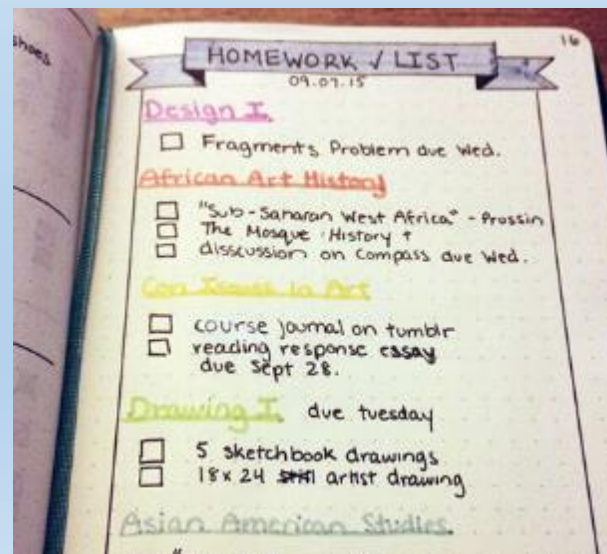 shoes
16
HOMEWORK √ LIST
09.07.15
Design I
Fragments Problem due Wed.
African Art History
"Sub-Saharan West Africa" - Prussin
The Mosque: History &
disscussion on Compass due Wed.
Con Issues in Art
course journal on tumblr
reading response essay
due Sept 28.
Drawing I due tuesday
5 sketchbook drawings
18x24 artist drawing
Asian American Studies